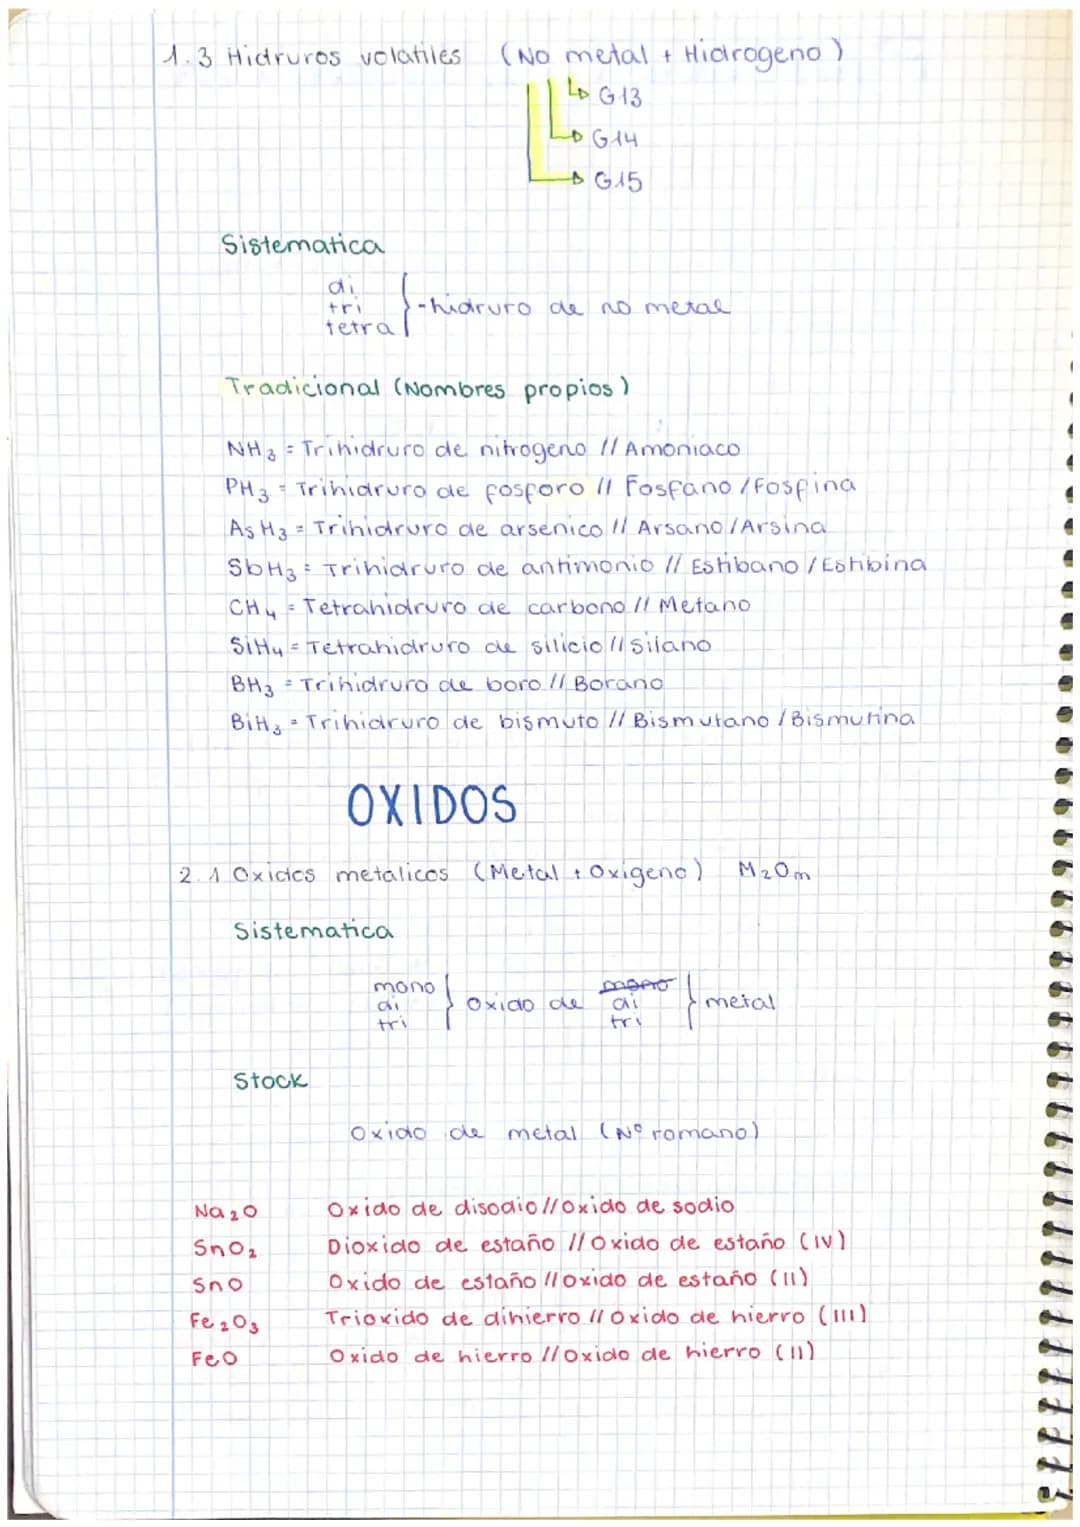 1.3 Hidruros volatiles (No metal + Hidrogeno)
G13
G14
G15
Sistematica
di
tri
tetra
-hidruro de no metal
Tradicional (Nombres propios)
NH3 = Trihidruro de nitrogeno // Amoniaco
PH3 = Trihidruro de fosforo // Fosfano / Fosfina
AsH3 = Trihidruro de arsenico // Arsano / Arsina
SbH3 = Trihidruro de antimonio // Estibano / Estibina
CH4 = Tetrahidruro de carbono // Metano
SiH4 = Tetrahidruro de silicio // silano
BH3 = Trihidruro de boro // Borano
BiH3 = Trihidruro de bismuto // Bismutano / Bismutina
OXIDOS
2.1 Oxidos metalicos (Metal + Oxigeno) M2Om
Sistematica
mono
di
tri
oxido de
mono
di
tri
metal
Stock
Oxido de metal (Nº romano)
Na2O Oxido de disodio // Oxido de sodio
SnO2 Dioxido de estaño // Oxido de estaño (IV)
SnO Oxido de estaño // Oxido de estaño (II)
Fe2O3 Trioxido de dihierro // Oxido de hierro (III)
FeO Oxido de hierro // Oxido de hierro (II)